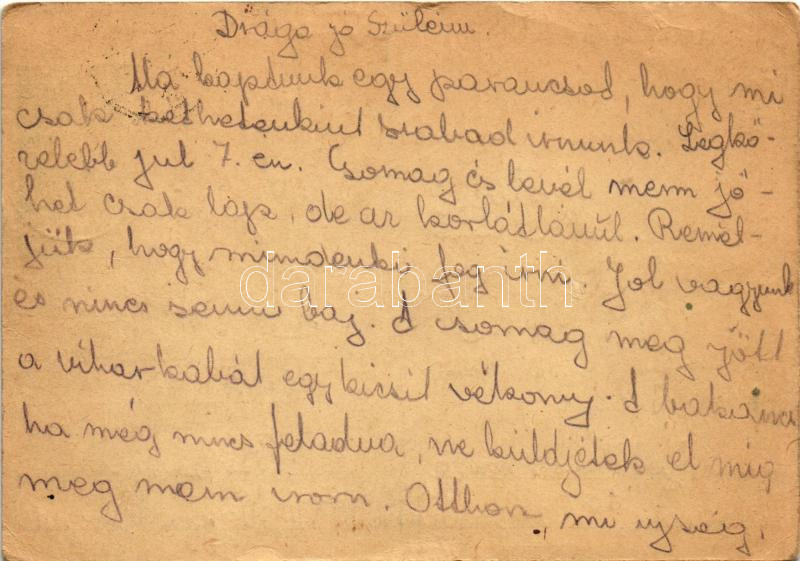 Drága jó Szüleim.
Ma kaptunk egy parancsod, hogy mi
csak kéthetenkint szabad irnunk. Legkö-
zelebb jul 7.-en. Csomag és levél nem jö-
het csak láp, de az korlátlanúl. Remél-
jük, hogy mindenki fog írni. Jol vagyunk
és nincs semmi baj. A csomag meg jött
a viharkabát egy kicsit vékony. A bakancs
ha még nincs feladva, ne küldjétek el mig
meg nem irom. Otthon, mi ujság,
darabanth